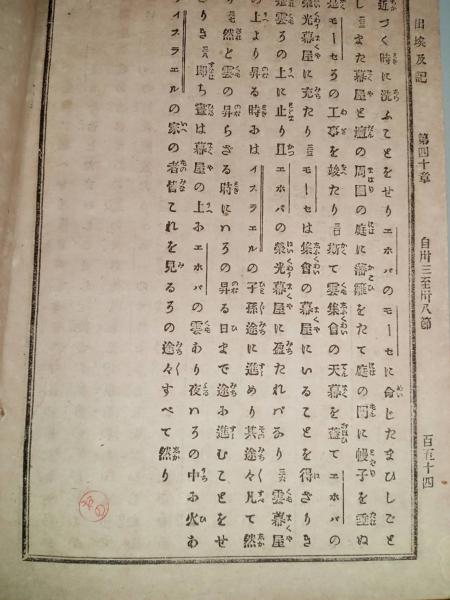 出埃及記 第四十章 自卅三至卅八節 百五十四
近づく時に洗ふことをせりエホバのモーセに命じたまひしごと
し また幕屋と壇の周圍の庭に藩籬をたて庭の門に幔子を垂ぬ
モーセその工事を竣たり 斯て雲集會の天幕を蓋てエホバの
榮光幕屋に充たり モーセは集會の幕屋にいることを得ざりき
雲その上に止り且エホバの榮光幕屋に盈たればなり 雲幕屋
の上より昇る時にはイスラエルの子孫途に進めり其途々凡て然
り 然ど雲の昇らざる時にはその昇る日まで途に進むことをせ
ざりき 即ち晝は幕屋の上にエホバの雲あり夜はその中に火あ
イスラエルの家の者皆これを見るその途々すべて然り